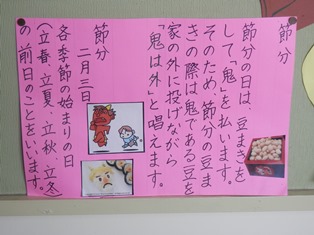 節分
節分の日は、豆まきを
して「鬼」を払います。
そのため、節分の豆ま
きの際は鬼である豆を
家の外に投げながら
「鬼は外」と唱えます。
節分
二月三日
各季節の始まりの日
(立春、立夏、立秋、立冬)
の前日のことをいいます。